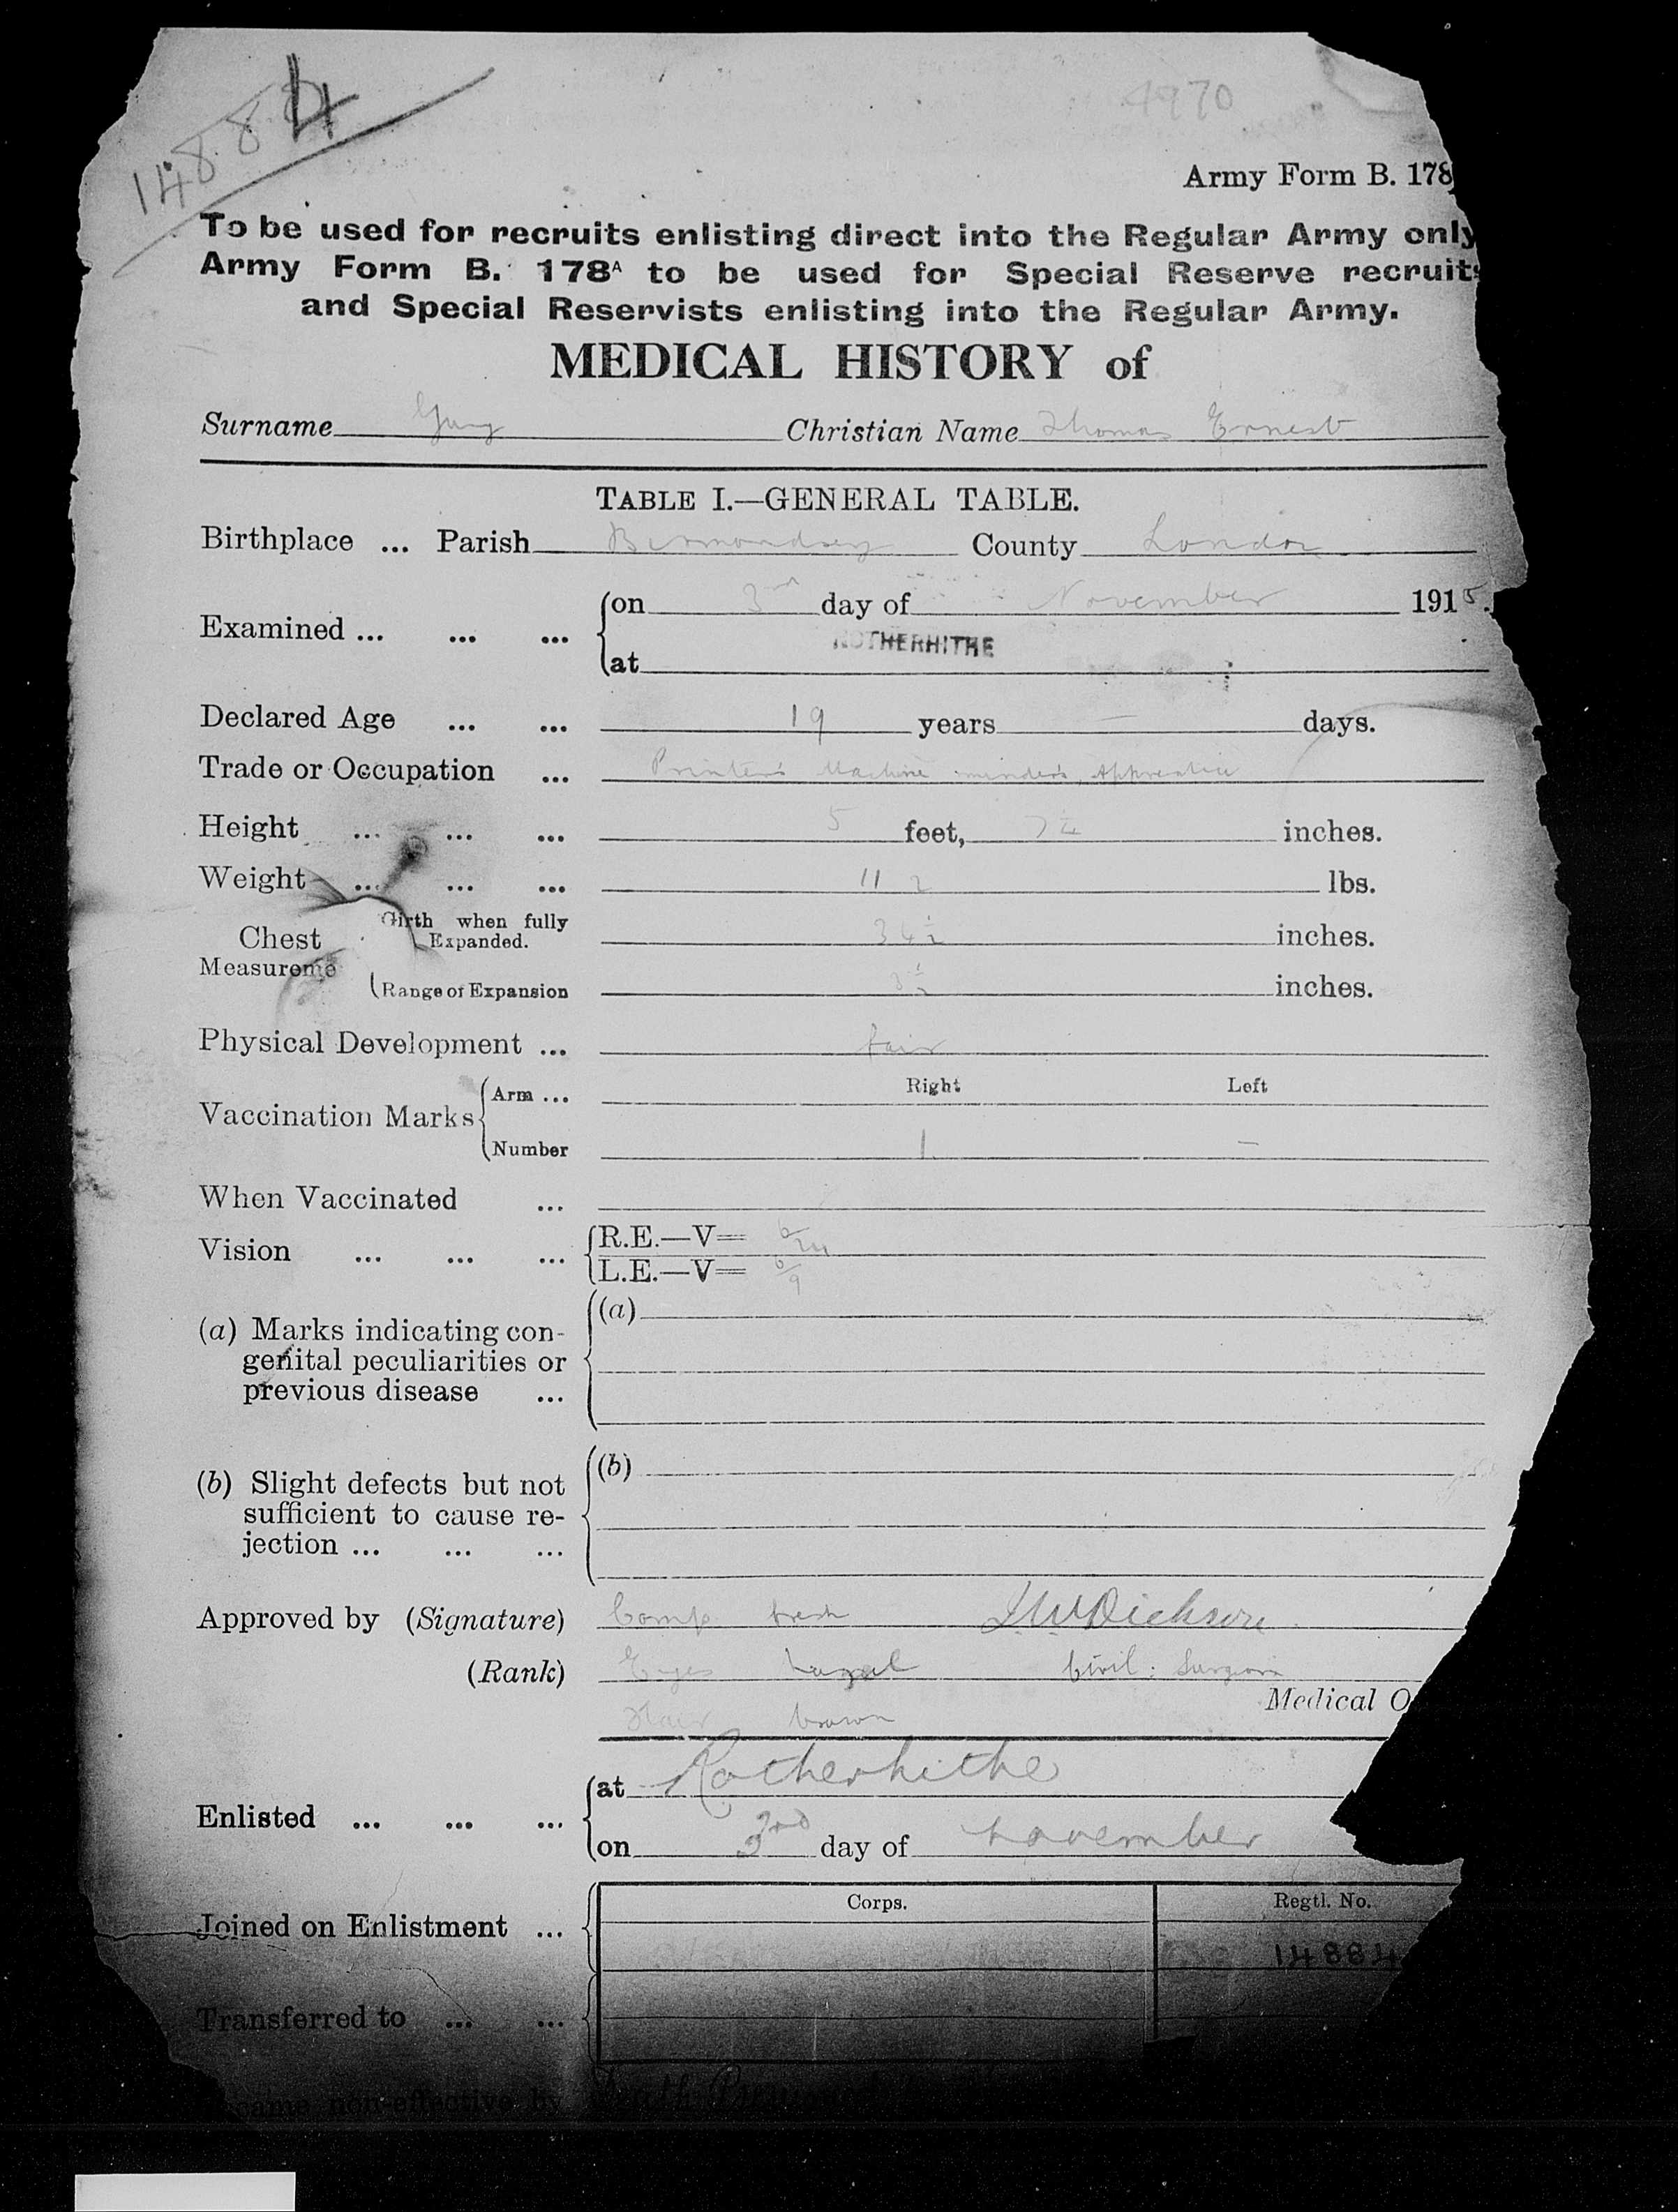 14884
4970
Army Form B. 178
To be used for recruits enlisting direct into the Regular Army only
Army Form B. 178A to be used for Special Reserve recruits
and Special Reservists enlisting into the Regular Army.
MEDICAL HISTORY of
Surname Christian Name Thomas Ernest
TABLE I.—GENERAL TABLE.
Birthplace ... Parish Bermondsey County London
Examined ... ... ... on 3rd day of November 1915.
at ROTHERHITHE
Declared Age ... ... 19 years — days.
Trade or Occupation ... Printer's Machine minder's Apprentice
Height ... ... ... 5 feet, 7¼ inches.
Weight ... ... ... 112 lbs.
Chest Measureme Girth when fully Expanded. 34½ inches.
Range of Expansion 3½ inches.
Physical Development ... fair
Right Left
Vaccination Marks Arm ...
Number 1 —
When Vaccinated ...
Vision ... ... ... R.E.—V= 6/24
L.E.—V= 6/9
(a) Marks indicating con-
genital peculiarities or
previous disease ...
(a)
(b) Slight defects but not
sufficient to cause re-
jection ... ... ...
(b)
Approved by (Signature) Comp. fresh J W Dickson
(Rank) Eyes hazel Civil: Surgeon
Medical O
Hair brown
Enlisted ... ... ... at Rotherhithe
on 3rd day of November
Corps. Regtl. No.
Joined on Enlistment ... 14884
Transferred to ... ...
came non-effective by Death